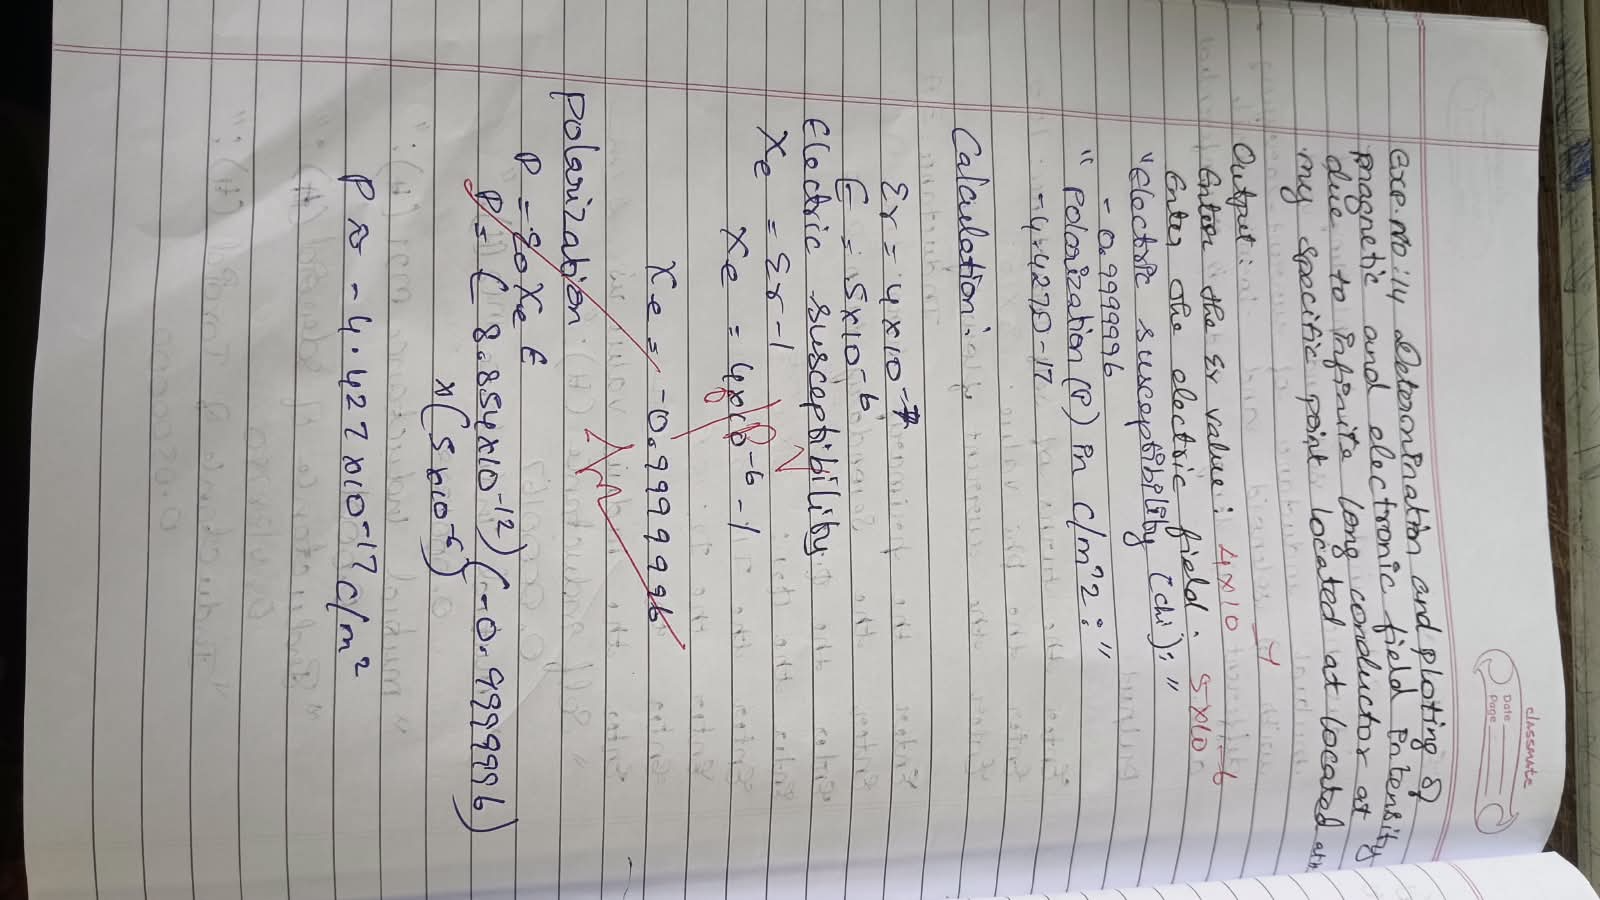 classmate
Date
Page
Exe.No:14 Determination and ploting of
magnetic and electronic field intensity
due to infinite long conductor at
my specific point located at located at
Output:
Enter the εr value: 4x10^-7
Enter the electric field: 5x10^-6
"electric susceptibility (chi):"
-0.9999996
"polarization (P) in c/m^2:"
-4.427D-17
Calculation:
εr = 4x10^-7
E = 5x10^-6
Electric susceptibility
Xe = εr-1
Xe = 4x10^-6-1
Xe = -0.9999996
Polarization
P = ε0 Xe E
P = (8.854x10^-12)(-0.9999996)
x(5x10^-6)
P ≈ -4.427x10^-17 c/m^2